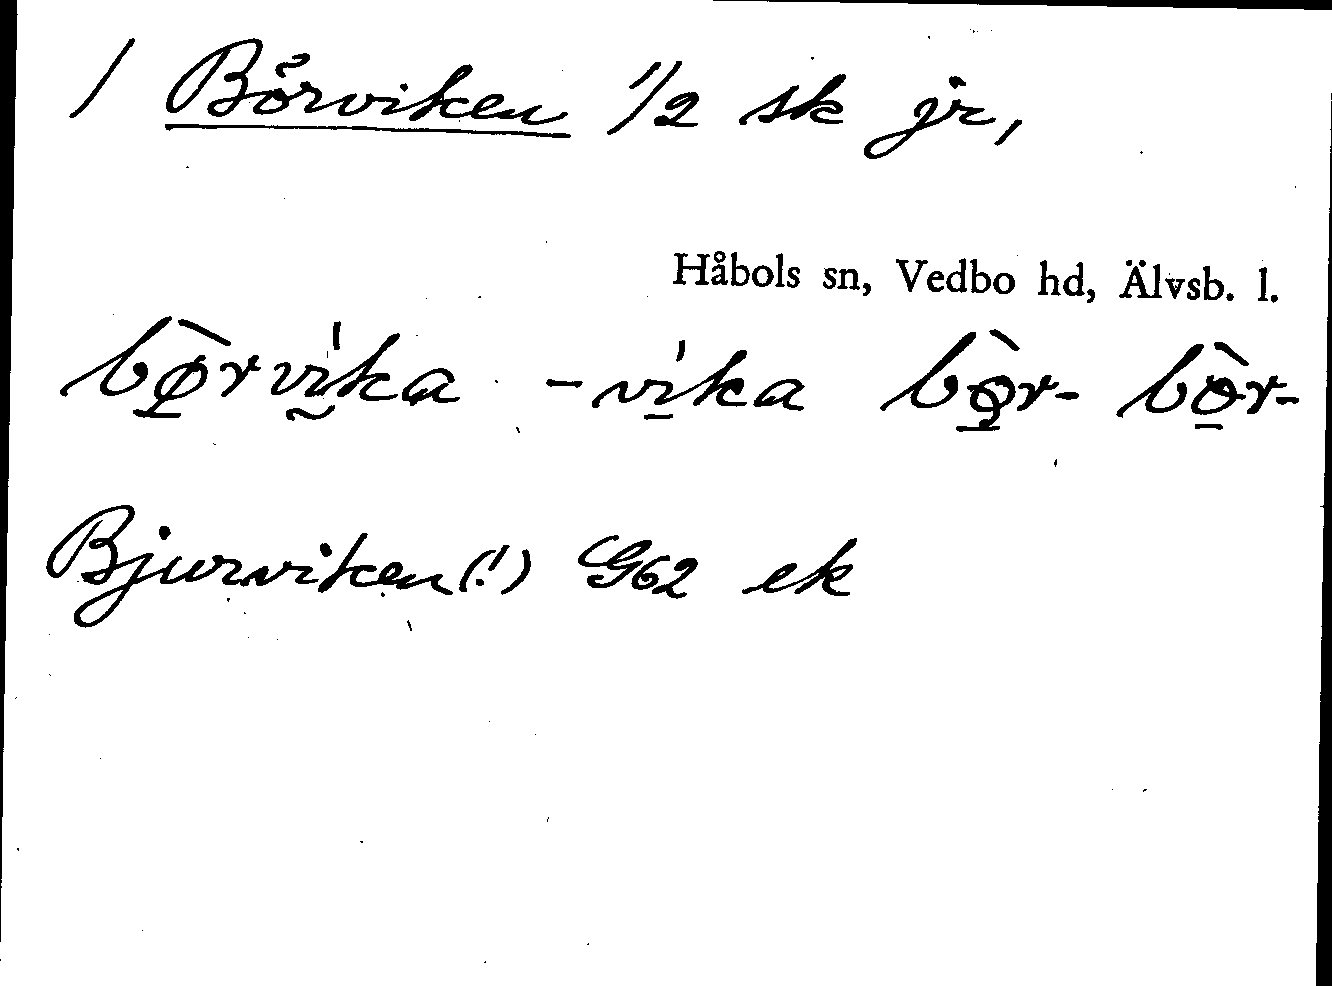 / Börviken 1/2 sk jr,
Håbols sn, Vedbo hd, Älvsb. l.
bø̀rvi̍ka -vi̍ka bø̀r- bö̀r-
Bjurviken (!) G62 ek